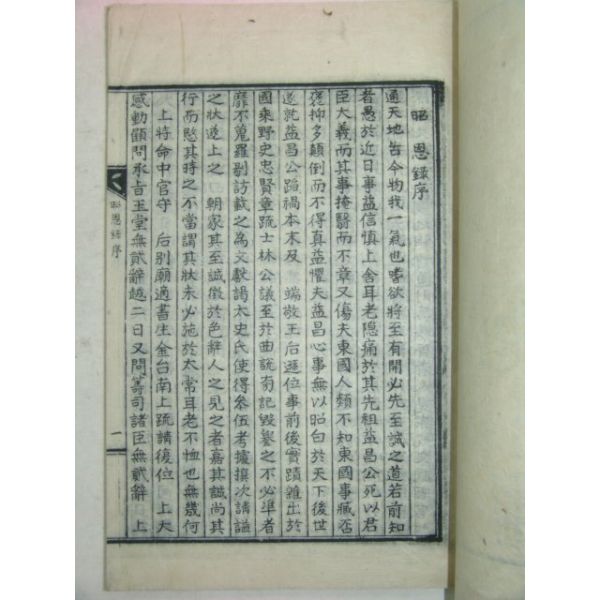 昭恩錄序
通天地古今物我一氣也嗜欲將至有開必先至誠之道若前知
者愚於近日事益信愼上舍耳老隐痛於其先祖益昌公死以君
臣大義而其事掩翳而不章又傷夫東國人類不知東國事臧否
褒抑多顛倒而不得真益懼夫益昌心事無以昭白於天下後世
遂就益昌公蹈禍本末及 端敬王后遜位事前後實蹟雜出於
國乘野史忠賢章疏士林公議至於曲說旁記毀譽之不必準者
靡不蒐羅剔訪載之為文獻謁太史氏使得叅伍考據撰次請謚
之狀遂上之 朝家其至誠徵於色辭人之見之者嘉其誠尚其
行而愍其時之不當謂其狀未必施於太常耳老不恤也無幾何
上特命中官守 后別廟適書生金台南上疏請復位 上大
感動顧問承旨玉堂無貳辭越二日又問籌司諸臣無貳辭 上
昭恩錄序
一